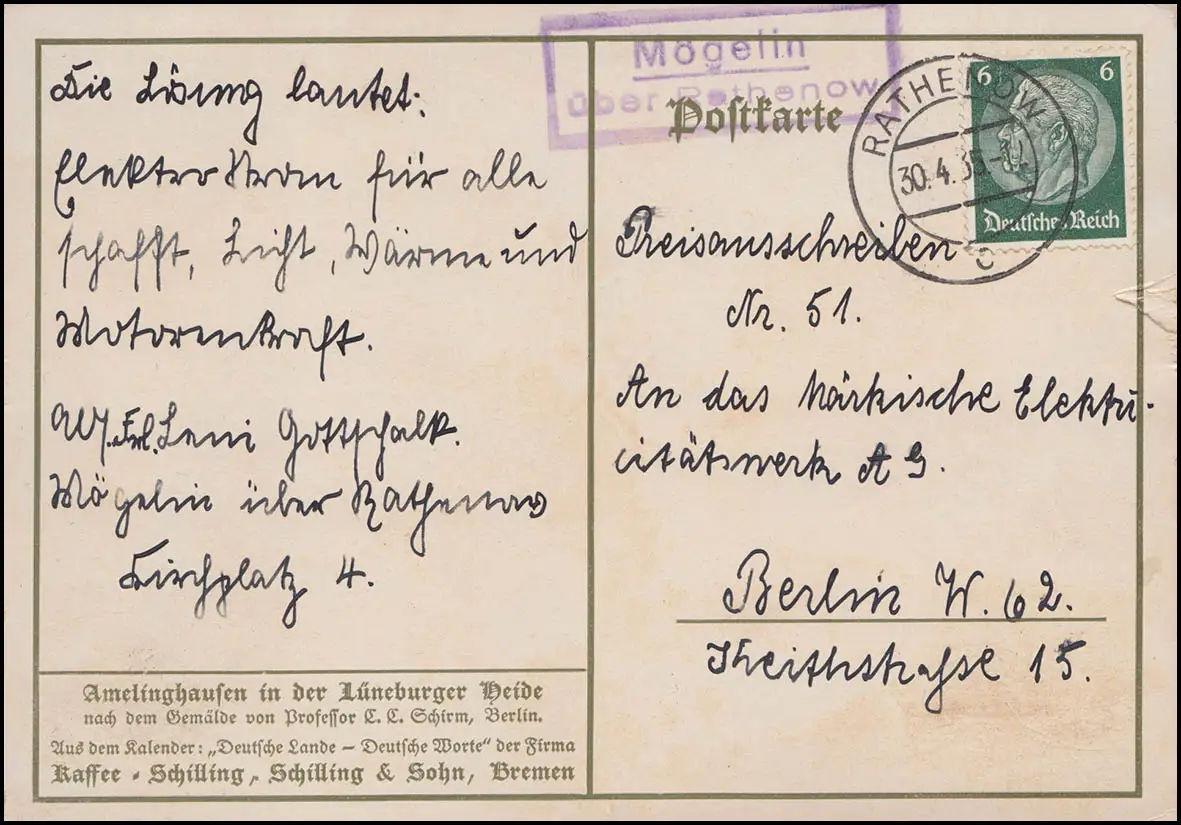 Die Lösung lautet:
Elektro Strom für alle
schafft, Licht, Wärme und
Motorenkraft.
Abs. Frl. Leni Gottschalk.
Mögelin über Rathenow
Kirchplatz 4.
Amelinghausen in der Lüneburger Heide
nach dem Gemälde von Professor C. C. Schirm, Berlin.
Aus dem Kalender: „Deutsche Lande – Deutsche Worte“ der Firma
Kaffee - Schilling, Schilling & Sohn, Bremen
Mögelin
über Rathenow
Postkarte
RATHENOW
30.4.35
c
6 6
Deutsches Reich
Preisausschreiben
Nr. 51.
An das Märkische Elektri-
citätswerk A G.
Berlin W. 62.
Keithstraße 15.